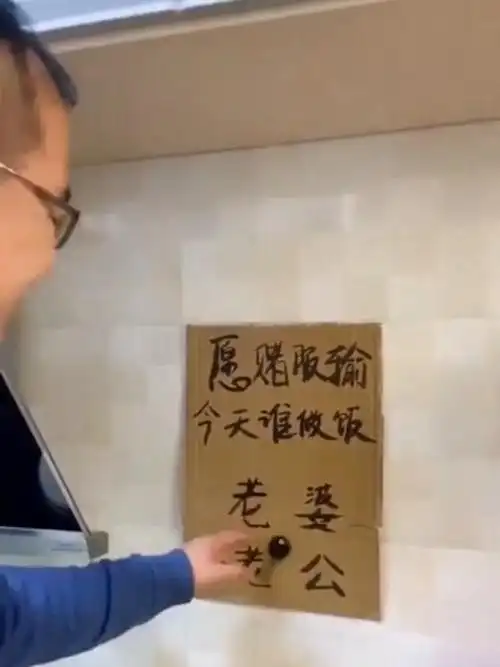 愿赌服输
今天谁做饭
老婆
老公